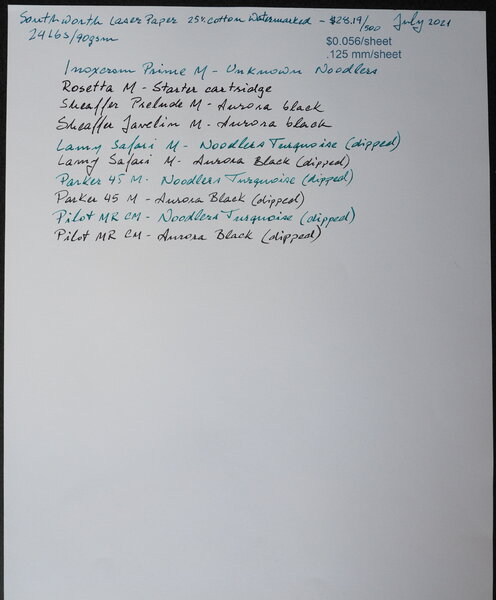 Southworth Laser Paper 25% cotton Watermarked - $28.19/500 July 2021
24 lbs/90gsm
$0.056/sheet
.125 mm/sheet
Inoxcrom Prime M - Unknown Noodlers
Rosetta M - Starter cartridge
Sheaffer Prelude M - Aurora black
Sheaffer Javelin M - Aurora black
Lamy Safari M - Noodlers Turquoise (dipped)
Lamy Safari M - Aurora Black (dipped)
Parker 45 M - Noodlers Turquoise (dipped)
Parker 45 M - Aurora Black (dipped)
Pilot MR CM - Noodlers Turquoise (dipped)
Pilot MR CM - Aurora Black (dipped)